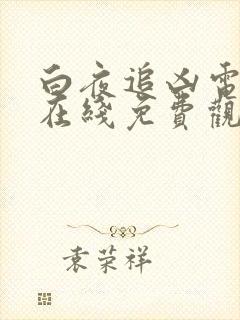 白夜追凶電
在綫免費觀
袁荣祥